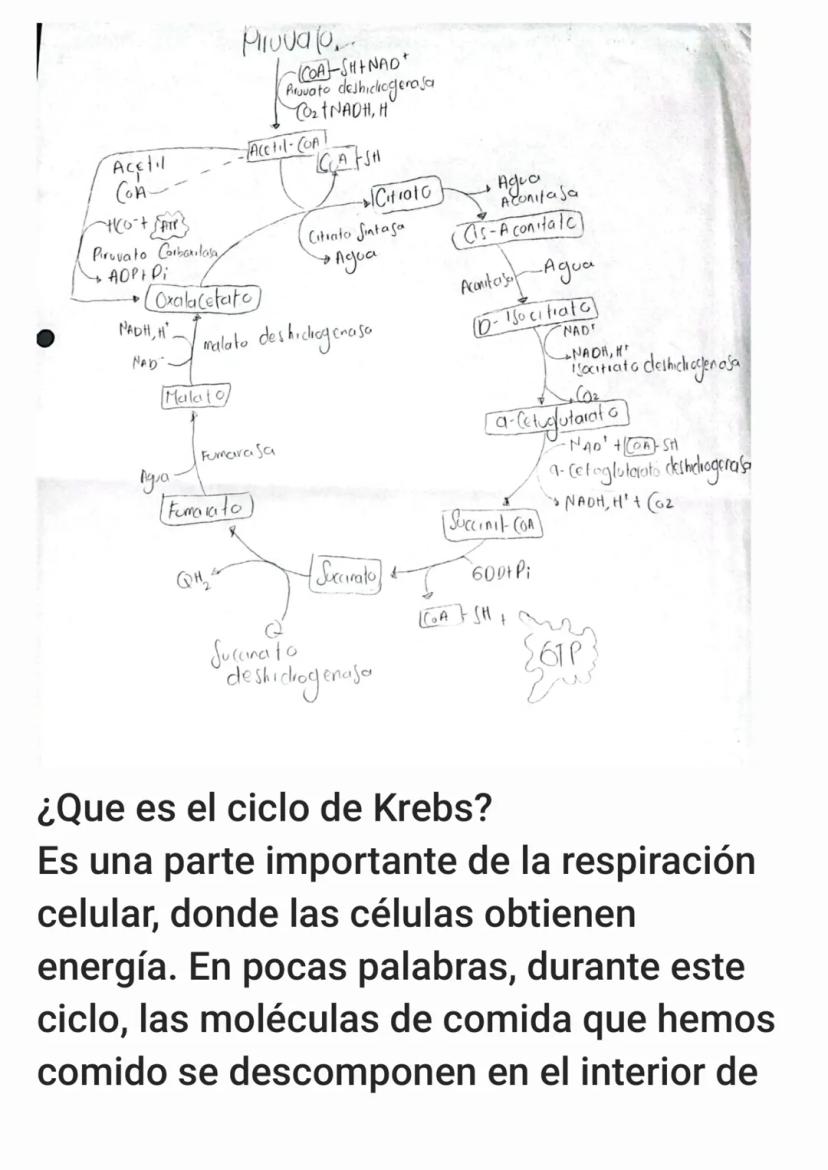 Piruvato
CoA-SH+NAD+
Piruvato deshidrogenasa
CO2+NADH, H
Acetil-CoA
CoA-SH
Acetil
CoA
HCO-+ ATP
Piruvato Carboxilasa
ADP+Pi
Oxalacetato
Citrato
Citrato Sintasa
Agua
Agua
Aconitasa
Cis-Aconitato
Aconitasa
Agua
D-Isocitrato
NAD+
NADH, H+
Isocitrato deshidrogenasa
CO2
a-Cetoglutarato
NAD+ +CoA-SH
a-Cetoglutarato deshidrogenasa
NADH, H+ + CO2
Succinil-CoA
GDD+Pi
CoA-SH +
GTP
Succinato
Q
QH2
Succinato
deshidrogenasa
Fumarato
Agua
Fumarasa
Malato
NADH, H+
NAD-
malato deshidrogenasa
¿Que es el ciclo de Krebs?
Es una parte importante de la respiración
celular, donde las células obtienen
energía. En pocas palabras, durante este
ciclo, las moléculas de comida que hemos
comido se descomponen en el interior de